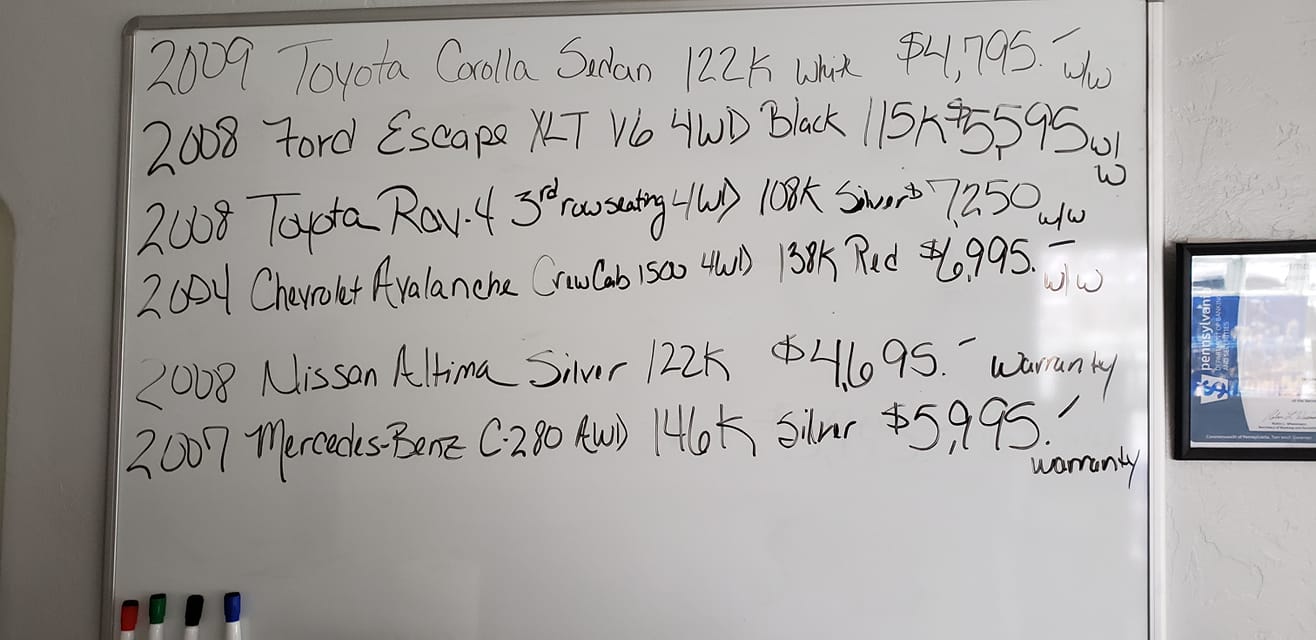 2009 Toyota Corolla Sedan 122K White $4,795.- w/w
2008 Ford Escape XLT V6 4WD Black 115K $5,595 w/
w
2008 Toyota Rav-4 3rd row seating 4WD 108K Silver $7,250 w/w
2004 Chevrolet Avalanche Crew Cab 1500 4WD 138K Red $6,995.- w/w
2008 Nissan Altima Silver 122K $4,695.- warranty
2007 Mercedes-Benz C-280 AWD 146K Silver $5,995.-
warranty
pennsylvania
DEPARTMENT OF BANKING
AND SECURITIES